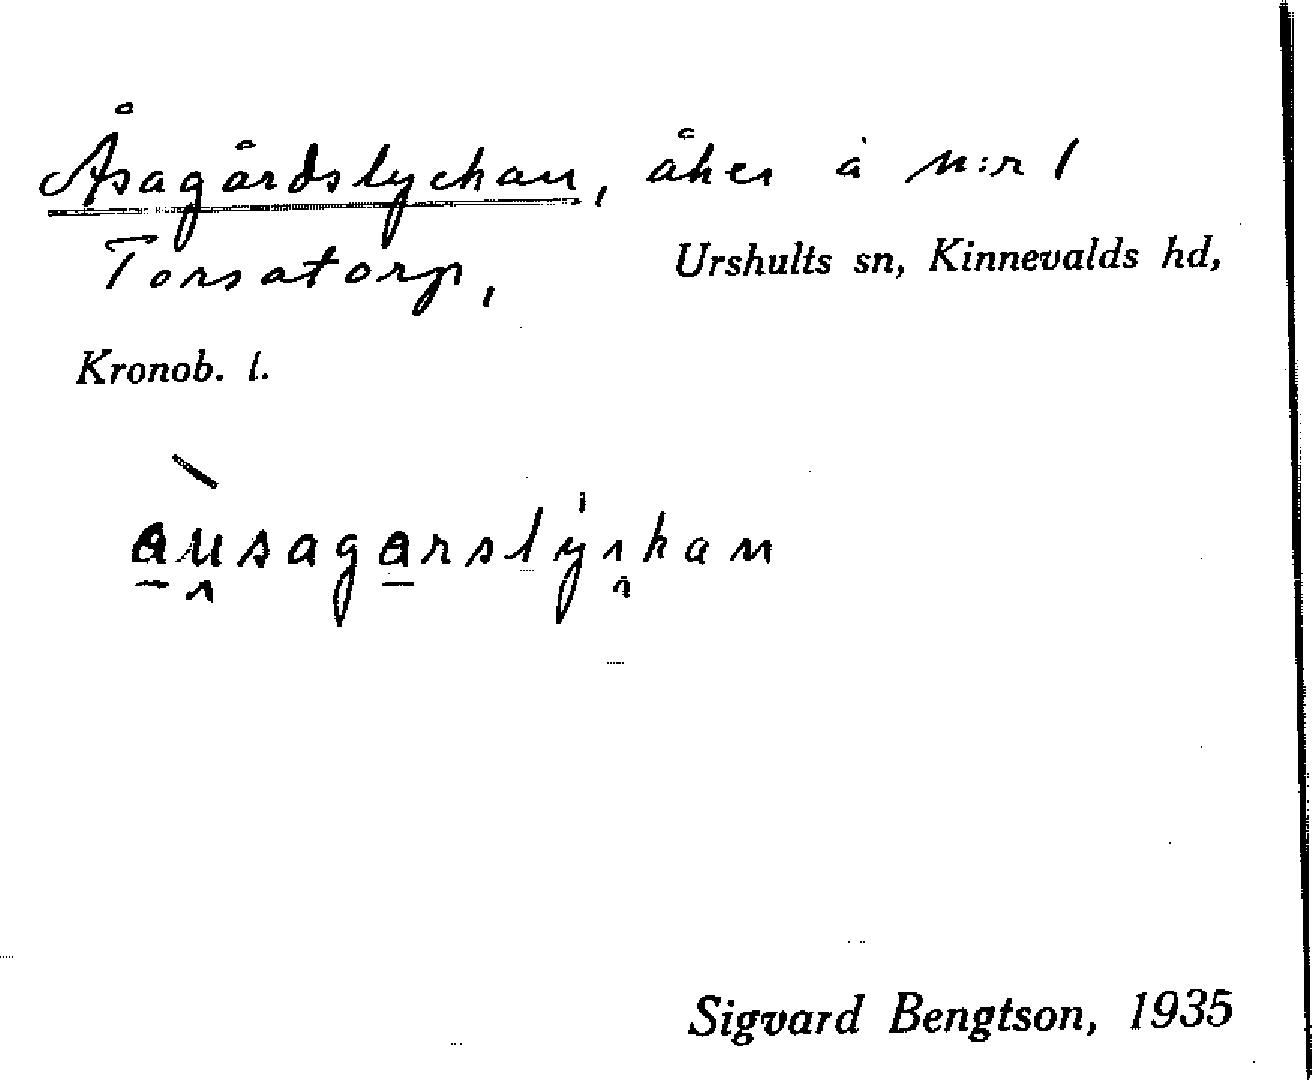 Åsagårdslyckan, åker å n:r 1
Torsatorp, Urshults sn, Kinnevalds hd,
Kronob. l.
au̯sagarslýi̯kan
Sigvard Bengtson, 1935